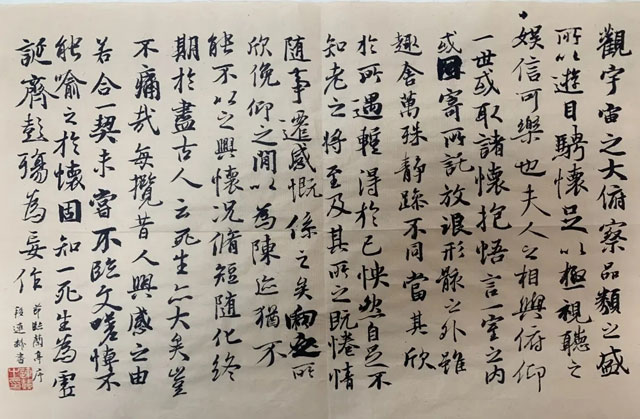 觀宇宙之大俯察品類之盛
所以遊目騁懷足以極視聽之
娛信可樂也夫人之相與俯仰
一世或取諸懷抱悟言一室之内
或因寄所託放浪形骸之外雖
趣舍萬殊静躁不同當其欣
於所遇輕得於己怏然自足不
知老之將至及其所之既惓情
随事遷感慨係之矣向之所
欣俛仰之閒以為陳迹猶不
能不以之興懷況脩短随化終
期於盡古人云死生亦大矣豈
不痛哉每攬昔人興感之由
若合一契未嘗不臨文嗟悼不
能喻之於懷固知一死生為虛
誕齊彭殤為妄作
節臨蘭亭序